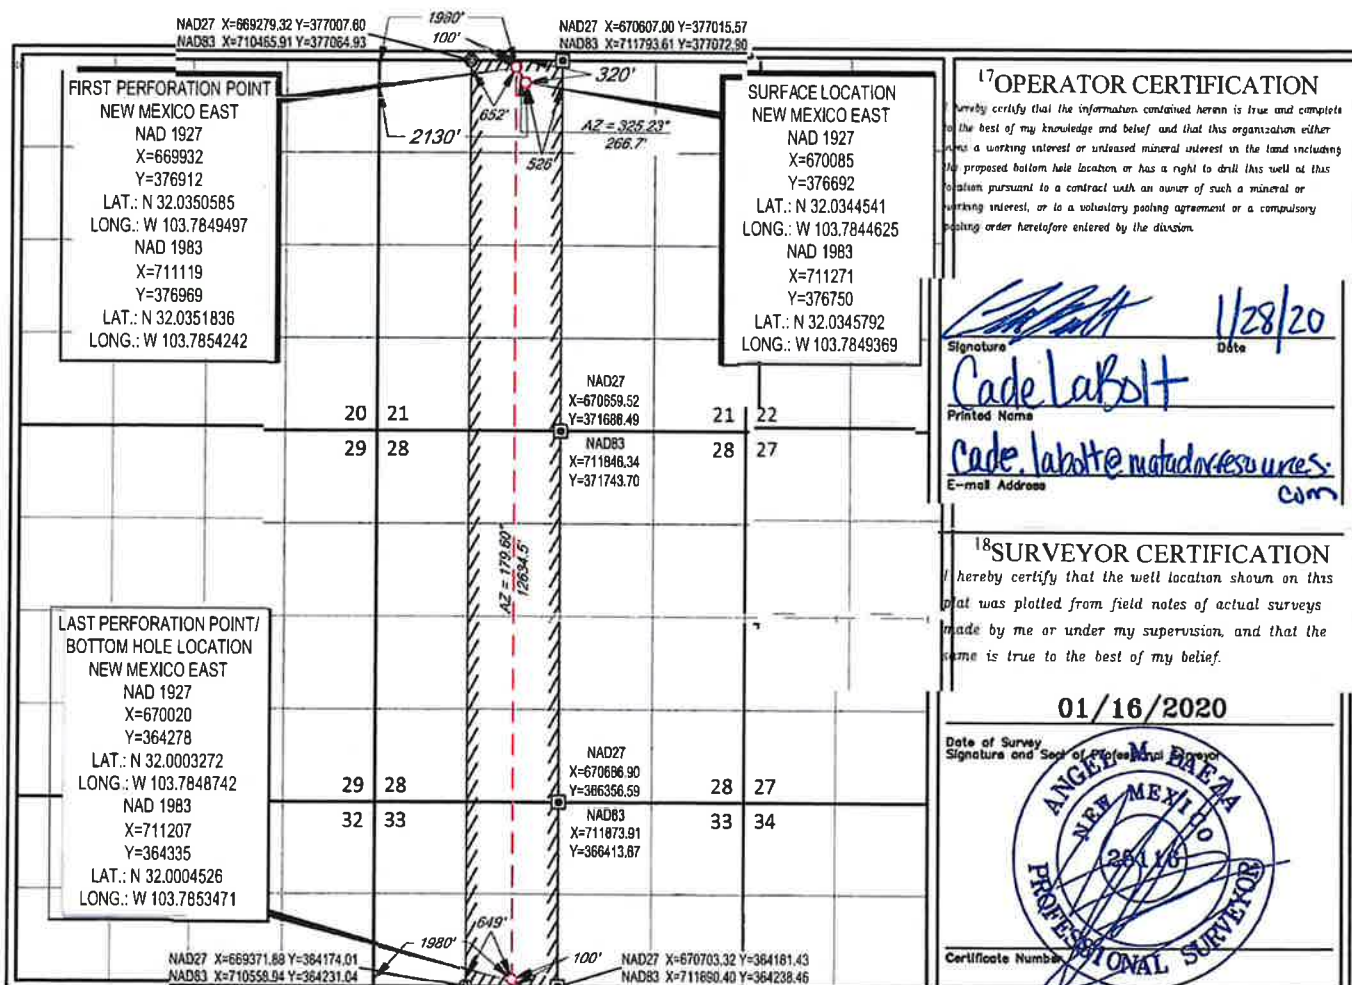 NAD27 X=669279.32 Y=377007.60
NAD83 X=710465.91 Y=377064.93
1980'
100'
NAD27 X=670607.00 Y=377015.57
NAD83 X=711793.61 Y=377072.90
320'
652'
2130'
526'
AZ = 325.23°
266.7'
FIRST PERFORATION POINT
NEW MEXICO EAST
NAD 1927
X=669932
Y=376912
LAT.: N 32.0350585
LONG.: W 103.7849497
NAD 1983
X=711119
Y=376969
LAT.: N 32.0351836
LONG.: W 103.7854242
SURFACE LOCATION
NEW MEXICO EAST
NAD 1927
X=670085
Y=376692
LAT.: N 32.0344541
LONG.: W 103.7844625
NAD 1983
X=711271
Y=376750
LAT.: N 32.0345792
LONG.: W 103.7849369
20 21
29 28
NAD27
X=670659.52
Y=371686.49
NAD83
X=711846.34
Y=371743.70
21 22
28 27
AZ = 179.60°
12634.5'
LAST PERFORATION POINT/
BOTTOM HOLE LOCATION
NEW MEXICO EAST
NAD 1927
X=670020
Y=364278
LAT.: N 32.0003272
LONG.: W 103.7848742
NAD 1983
X=711207
Y=364335
LAT.: N 32.0004526
LONG.: W 103.7853471
29 28
32 33
NAD27
X=670686.90
Y=366356.59
NAD83
X=711873.91
Y=366413.87
28 27
33 34
649'
1980'
100'
NAD27 X=669371.88 Y=364174.01
NAD83 X=710558.94 Y=364231.04
NAD27 X=670703.32 Y=364181.43
NAD83 X=711890.40 Y=364238.46
17 OPERATOR CERTIFICATION
hereby certify that the information contained herein is true and complete
to the best of my knowledge and belief and that this organization either
owns a working interest or unleased mineral interest in the land including
the proposed bottom hole location or has a right to drill this well at this
location pursuant to a contract with an owner of such a mineral or
working interest, or to a voluntary pooling agreement or a compulsory
pooling order heretofore entered by the division
1/28/20
Signature Date
Cade LaBolt
Printed Name
cade.labolt@matadorresources.
com
E-mail Address
18 SURVEYOR CERTIFICATION
I hereby certify that the well location shown on this
plat was plotted from field notes of actual surveys
made by me or under my supervision, and that the
same is true to the best of my belief.
01/16/2020
Date of Survey
Signature and Seal of Professional Surveyor
ANGEL M. BAEZA
NEW MEXICO
25116
PROFESSIONAL SURVEYOR
Certificate Number